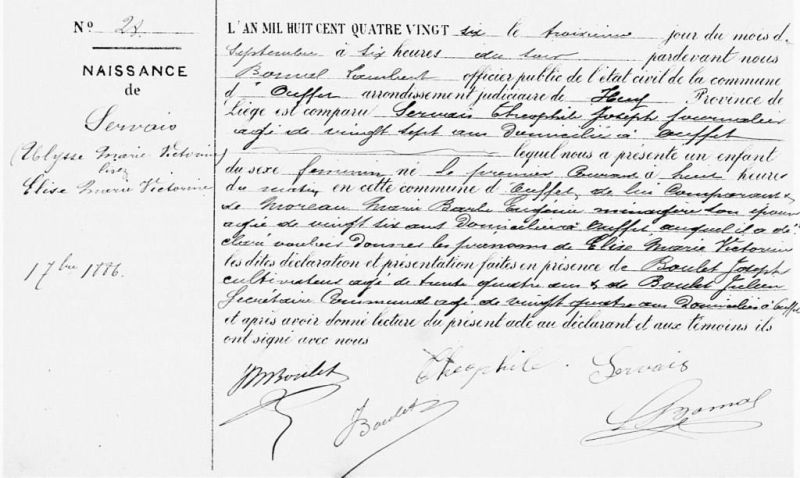 N° 28.
NAISSANCE
de
Servais
(Ulysse Marie Victorine
lisez
Elise Marie Victorine
1 7bre 1886.
L'AN MIL HUIT CENT QUATRE VINGT six le troisième jour du mois d
Septembre à six heures du soir pardevant nous
Bomal Lambert officier public de l'état civil de la commune
d'Ouffet arrondissement judiciaire de Huy Province de
Liège est comparu Servais Théophile Joseph Journalier
agé de vingt sept ans Domicilié à Ouffet
lequel nous a présenté un enfant
du sexe feminin né le premier Courant à huit heures
du matin en cette commune d'Ouffet, de lui Comparant &
de Moreau Marie Barbe Eugénie ménagère son épouse
agée de vingt six ans Domiciliée à Ouffet auquel il a dé-
claré vouloir Donner les prénoms de Elise Marie Victorine
les dites déclaration et présentation faites en présence de Boulet Joseph
cultivateur agé de trente quatre ans & de Boulet Julien
Secrétaire Communal agé de vingt quatre ans Domiciliés à Ouffet
et après avoir donné lecture du présent acte au déclarant et aux témoins ils
ont signé avec nous
Boulet Théophile Servais
J Boulet L Bomal